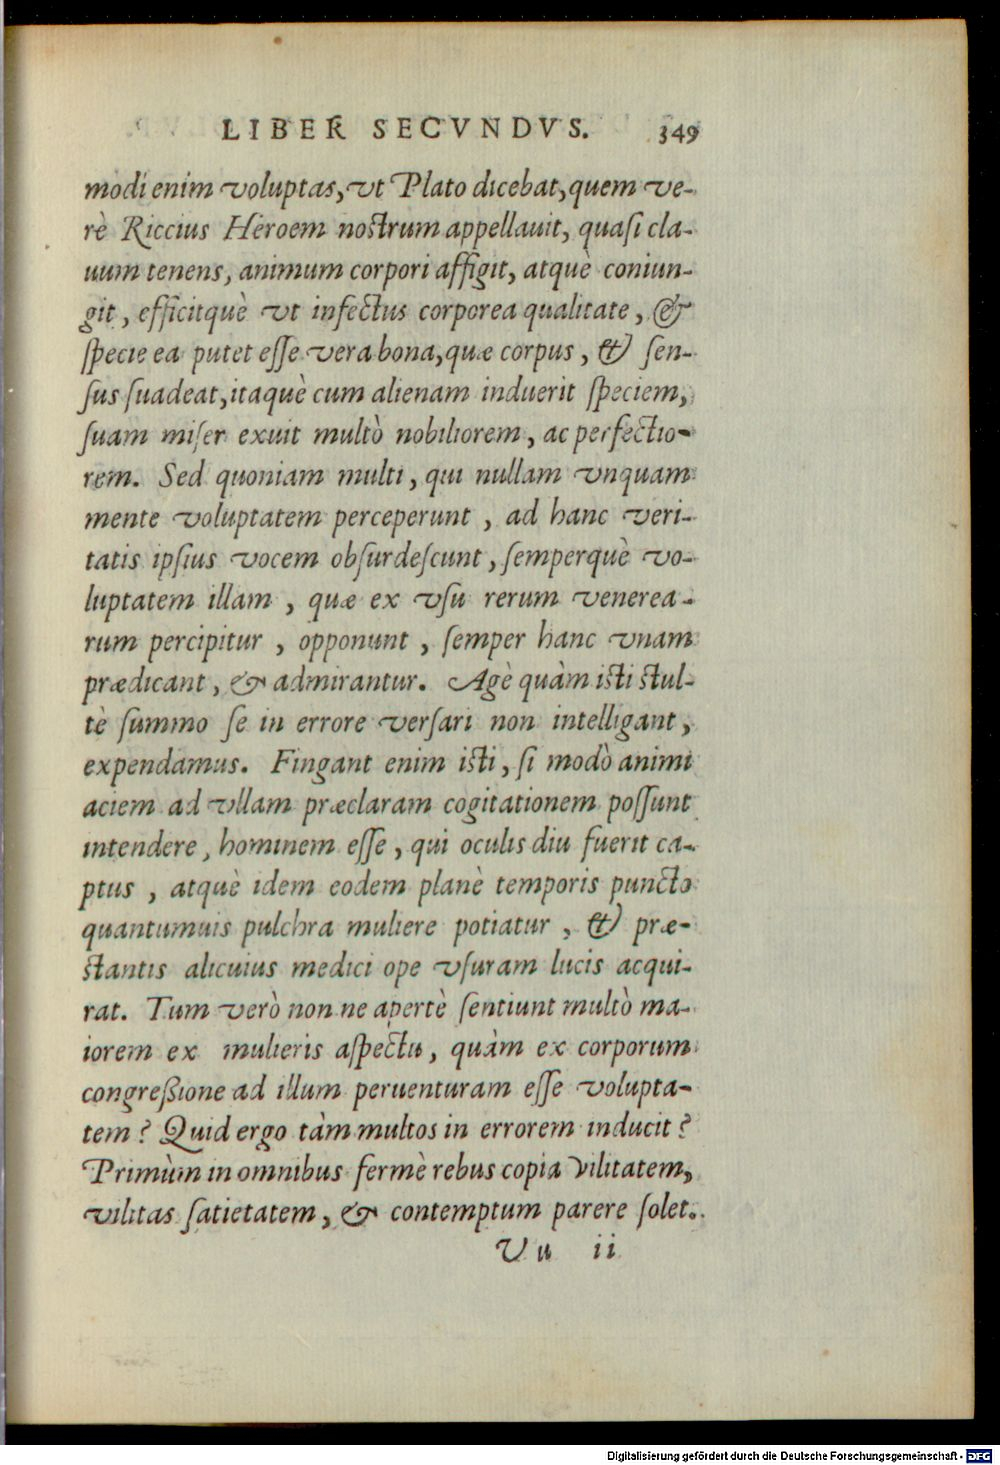 LIBER SECVNDVS. 349
modi enim voluptas, vt Plato dicebat, quem ve-
rè Riccius Heroem nostrum appellauit, quasi cla-
uum tenens, animum corpori affigit, atquè coniun-
git, efficitquè vt infectus corporea qualitate, &
specie ea putet esse vera bona, quæ corpus, & sen-
sus suadeat, itaquè cum alienam induerit speciem,
suam miser exuit multò nobiliorem, ac perfectio-
rem. Sed quoniam multi, qui nullam vnquam
mente voluptatem perceperunt, ad hanc veri-
tatis ipsius vocem obsurdescunt, semperquè vo-
luptatem illam, quæ ex vsu rerum venerea-
rum percipitur, opponunt, semper hanc vnam
prædicant, & admirantur. Agè quàm isti stul-
tè summo se in errore versari non intelligant,
expendamus. Fingant enim isti, si modò animi
aciem ad vllam præclaram cogitationem possunt
intendere, hominem esse, qui oculis diu fuerit ca-
ptus, atquè idem eodem planè temporis puncto
quantumuis pulchra muliere potiatur, & præ-
stantis alicuius medici ope vsuram lucis acqui-
rat. Tum verò non ne apertè sentiunt multò ma-
iorem ex mulieris aspectu, quàm ex corporum
congreßione ad illum peruenturam esse volupta-
tem? Quid ergo tàm multos in errorem inducit?
Primùm in omnibus fermè rebus copia vilitatem,
vilitas satietatem, & contemptum parere solet.
Vu ii
Digitalisierung gefördert durch die Deutsche Forschungsgemeinschaft - DFG